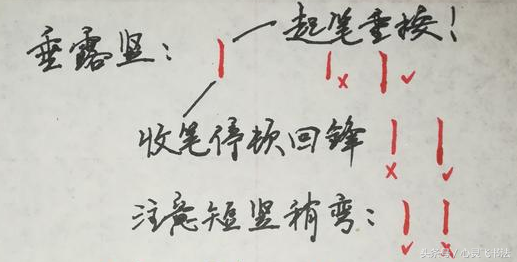 垂露竖：一起笔重按！
收笔停顿回锋
注意短竖稍弯：
头条号/心灵飞书法